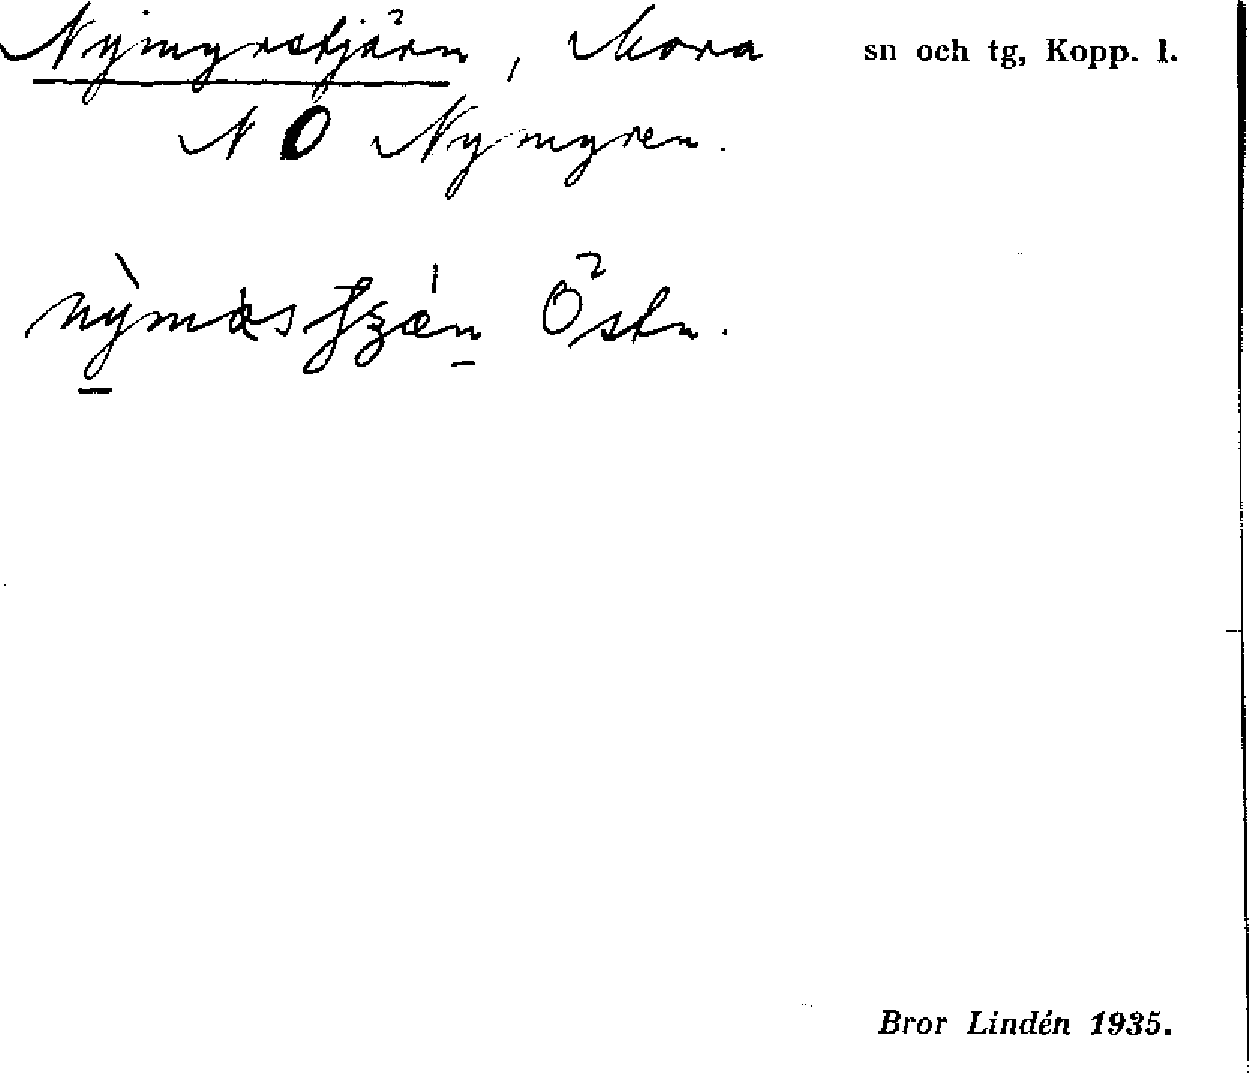 Nymyrstjärn, Mora sn och tg, Kopp. l.
N O Nymyren.
Östn.
Bror Lindén 1935.